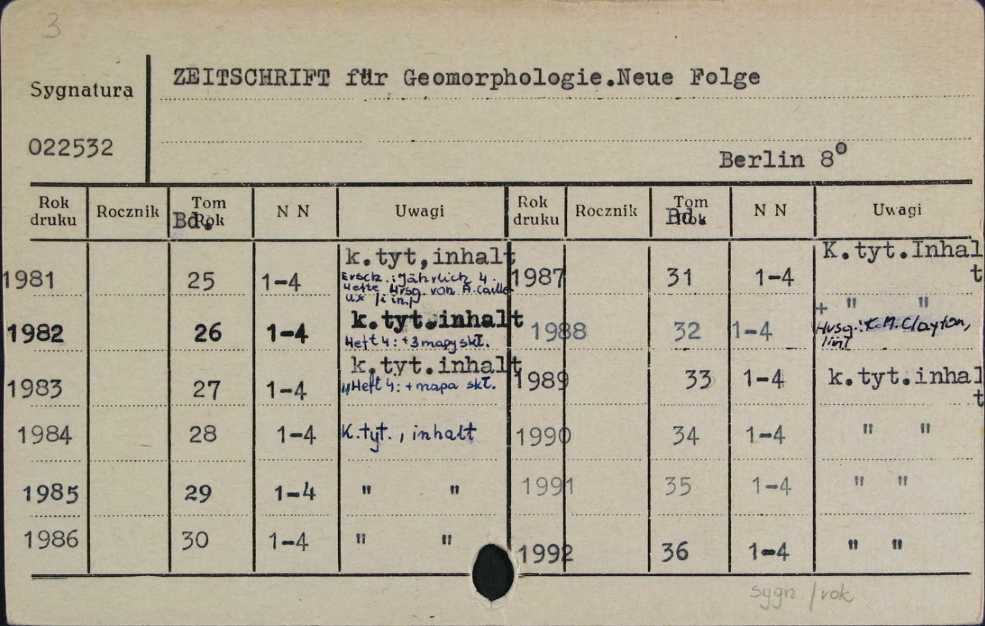 3
Sygnatura
ZEITSCHRIFT für Geomorphologie.Neue Folge
022532
Berlin 8°
Rok druku Rocznik Tom Rok Bd. N N Uwagi Rok druku Rocznik Tom Rok Bd. N N Uwagi
1981 25 1-4 k.tyt,inhalt
Ersch.: jährlich 4.
Hefte Hrsg. von A. Caille
ux /i in/
1987 31 1-4 K.tyt.Inhal
t
1982 26 1-4 k.tyt.inhalt
Heft 4: +3 mapy skł.
1988 32 1-4 + " "
Hrsg.: K. M. Clayton,
/in/
1983 27 1-4 k.tyt.inhalt
Heft 4: + mapa skł.
1989 33 1-4 k.tyt.inhal
t
1984 28 1-4 K.tyt., inhalt 1990 34 1-4 " "
1985 29 1-4 " " 1991 35 1-4 " "
1986 30 1-4 " " 1992 36 1-4 " "
sygn /rok